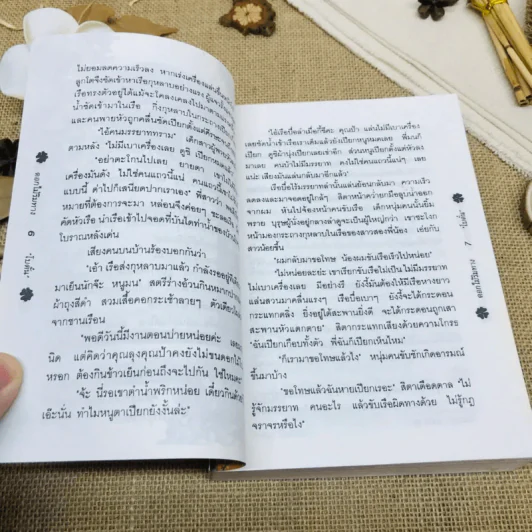 ไม่ยอมลดความเร็วลง หากเร่งเครื่องแล่น
ลูกโตจึงซัดเข้าหาเรือกุหลาบอย่างแรง
เรือทรงตัวอยู่ได้แม้จะโคลงเคลงไปมา
น้ำซัดเข้ามาในเรือ กิ่งกุหลาบในกระถาง
และคนพายหัวถูกคลื่นซัดเปียกตั้งแต่ศีรษะ
"ไอ้คนมรรยาททราม" เด็กสาว
ตามหลัง "ไม่มีเบาเครื่องเลย ดูซิ เปียกหมดแล้ว
"อย่าตะโกนไปเลย ยายตา
เครื่องมันดัง ไม่ใช่คนแถวนี้แน่ คนแถวนี้
แบบนี้ ด่าไปก็เสนียดปากเราเอง" พี่สาวว่า
หมายที่ต้องการจะแวะ หล่อนจึงค่อยๆ
คัดหัวเรือ นำเรือเข้าไปจอดที่บันไดท่าน้ำของ
โบราณหลังเด่น
เสียงคนบนบ้านร้องบอกกันว่า
"เอ้า เรือส่งกุหลาบมาแล้ว กำลังรออยู่ทีเดียว
มาเย็นนักจ๊ะ หนูมน" สตรีร่างอ้วนกินหมากปาก
ผ้าถุงสีดำ สวมเสื้อคอกระเช้าลายๆ ตัวเดียว
จากชานเรือน
"พอดีวันนี้มีงานตอนบ่ายหน่อยค่ะ เลย
นิด แต่คิดว่าคุณลุงคุณป้าคงยังไม่ขนดอกไม้
หรอก ต้องกินข้าวเย็นก่อนถึงจะไปกัน ใช่ไหมคะ"
"จ้ะ นี่รอเขาตำน้ำพริกหน่อย เดี๋ยวกินด้วย
เอ๊ะนั่น ทำไมหนูตาเปียกยังงั้นล่ะ"
6
"ไอ้เรือบ้อลำเมื่อกี้ซีคะ คุณป้า แล่นไม่มีเบาเครื่อง
เลยซัดน้ำเข้าเรือเราเต็มแล้วยังเปียกหนูหมดเลย พี่มนก็
เปียก ดูซิผ้านุ่งเปียกเลยเข่าอีก ส่วนหนูเปียกตั้งแต่หัวลง
มาเลย คนบ้าไม่มีมรรยาท คงไม่ใช่คนแถวนี้แน่ๆ เลย
แน่ะ เสียงมันแล่นกลับมาอีกแล้ว"
เรือนี่อไร้มรรยาทลำนั้นแล่นย้อนกลับมา ความเร็ว
ลดลงและมาจอดอยู่ใกล้ๆ สิตาหน้าคว่ำยกมือลูบน้ำออก
จากผม หันไปจ้องหน้าคนขับเรือ เด็กหนุ่มคนนั้นยิ้ม
พราย บุรุษผู้นั่งอยู่กลางลำดูจะเป็นผู้ใหญ่กว่า เขาชะโงก
หน้ามองกระถางกุหลาบในเรือของสาวสองพี่น้อง เอ่ยกับ
สาวน้อยขึ้น
"ผมกลับมาขอโทษ น้องผมขับเรือเร็วไปหน่อย"
"ไม่หน่อยละย่ะ เขาเรียกขับเรือไม่เป็น ไม่มีมรรยาท
ไม่เบาเครื่องเลย มีอย่างรึ ยังงี้มันต้องให้มีเรือหางยาว
แล่นสวนมาคลื่นแรงๆ เรือบื้อเบาๆ ยังงี้จะได้กระดอน
กระแทกตลิ่ง ยิ่งอยู่ใต้สะพานยิ่งดี จะได้กระดอนถูกเสา
สะพานหัวแตกตาย" สิตากระแทกเสียงด้วยความโกรธ
"ฉันเปียกเกือบทั้งตัว พี่ฉันก็เปียกเห็นไหม"
"ก็เรามาขอโทษแล้วไง" หนุ่มคนขับชักเกิดอารมณ์
ขึ้นมาบ้าง
"ขอโทษแล้วฉันหายเปียกเรอะ" สิตาเดือดดาล "ไม่
รู้จักมรรยาท คนอะไร แล้วขับเรือผิดทางด้วย ไม่รู้กฎ
จราจรหรือไง"
7